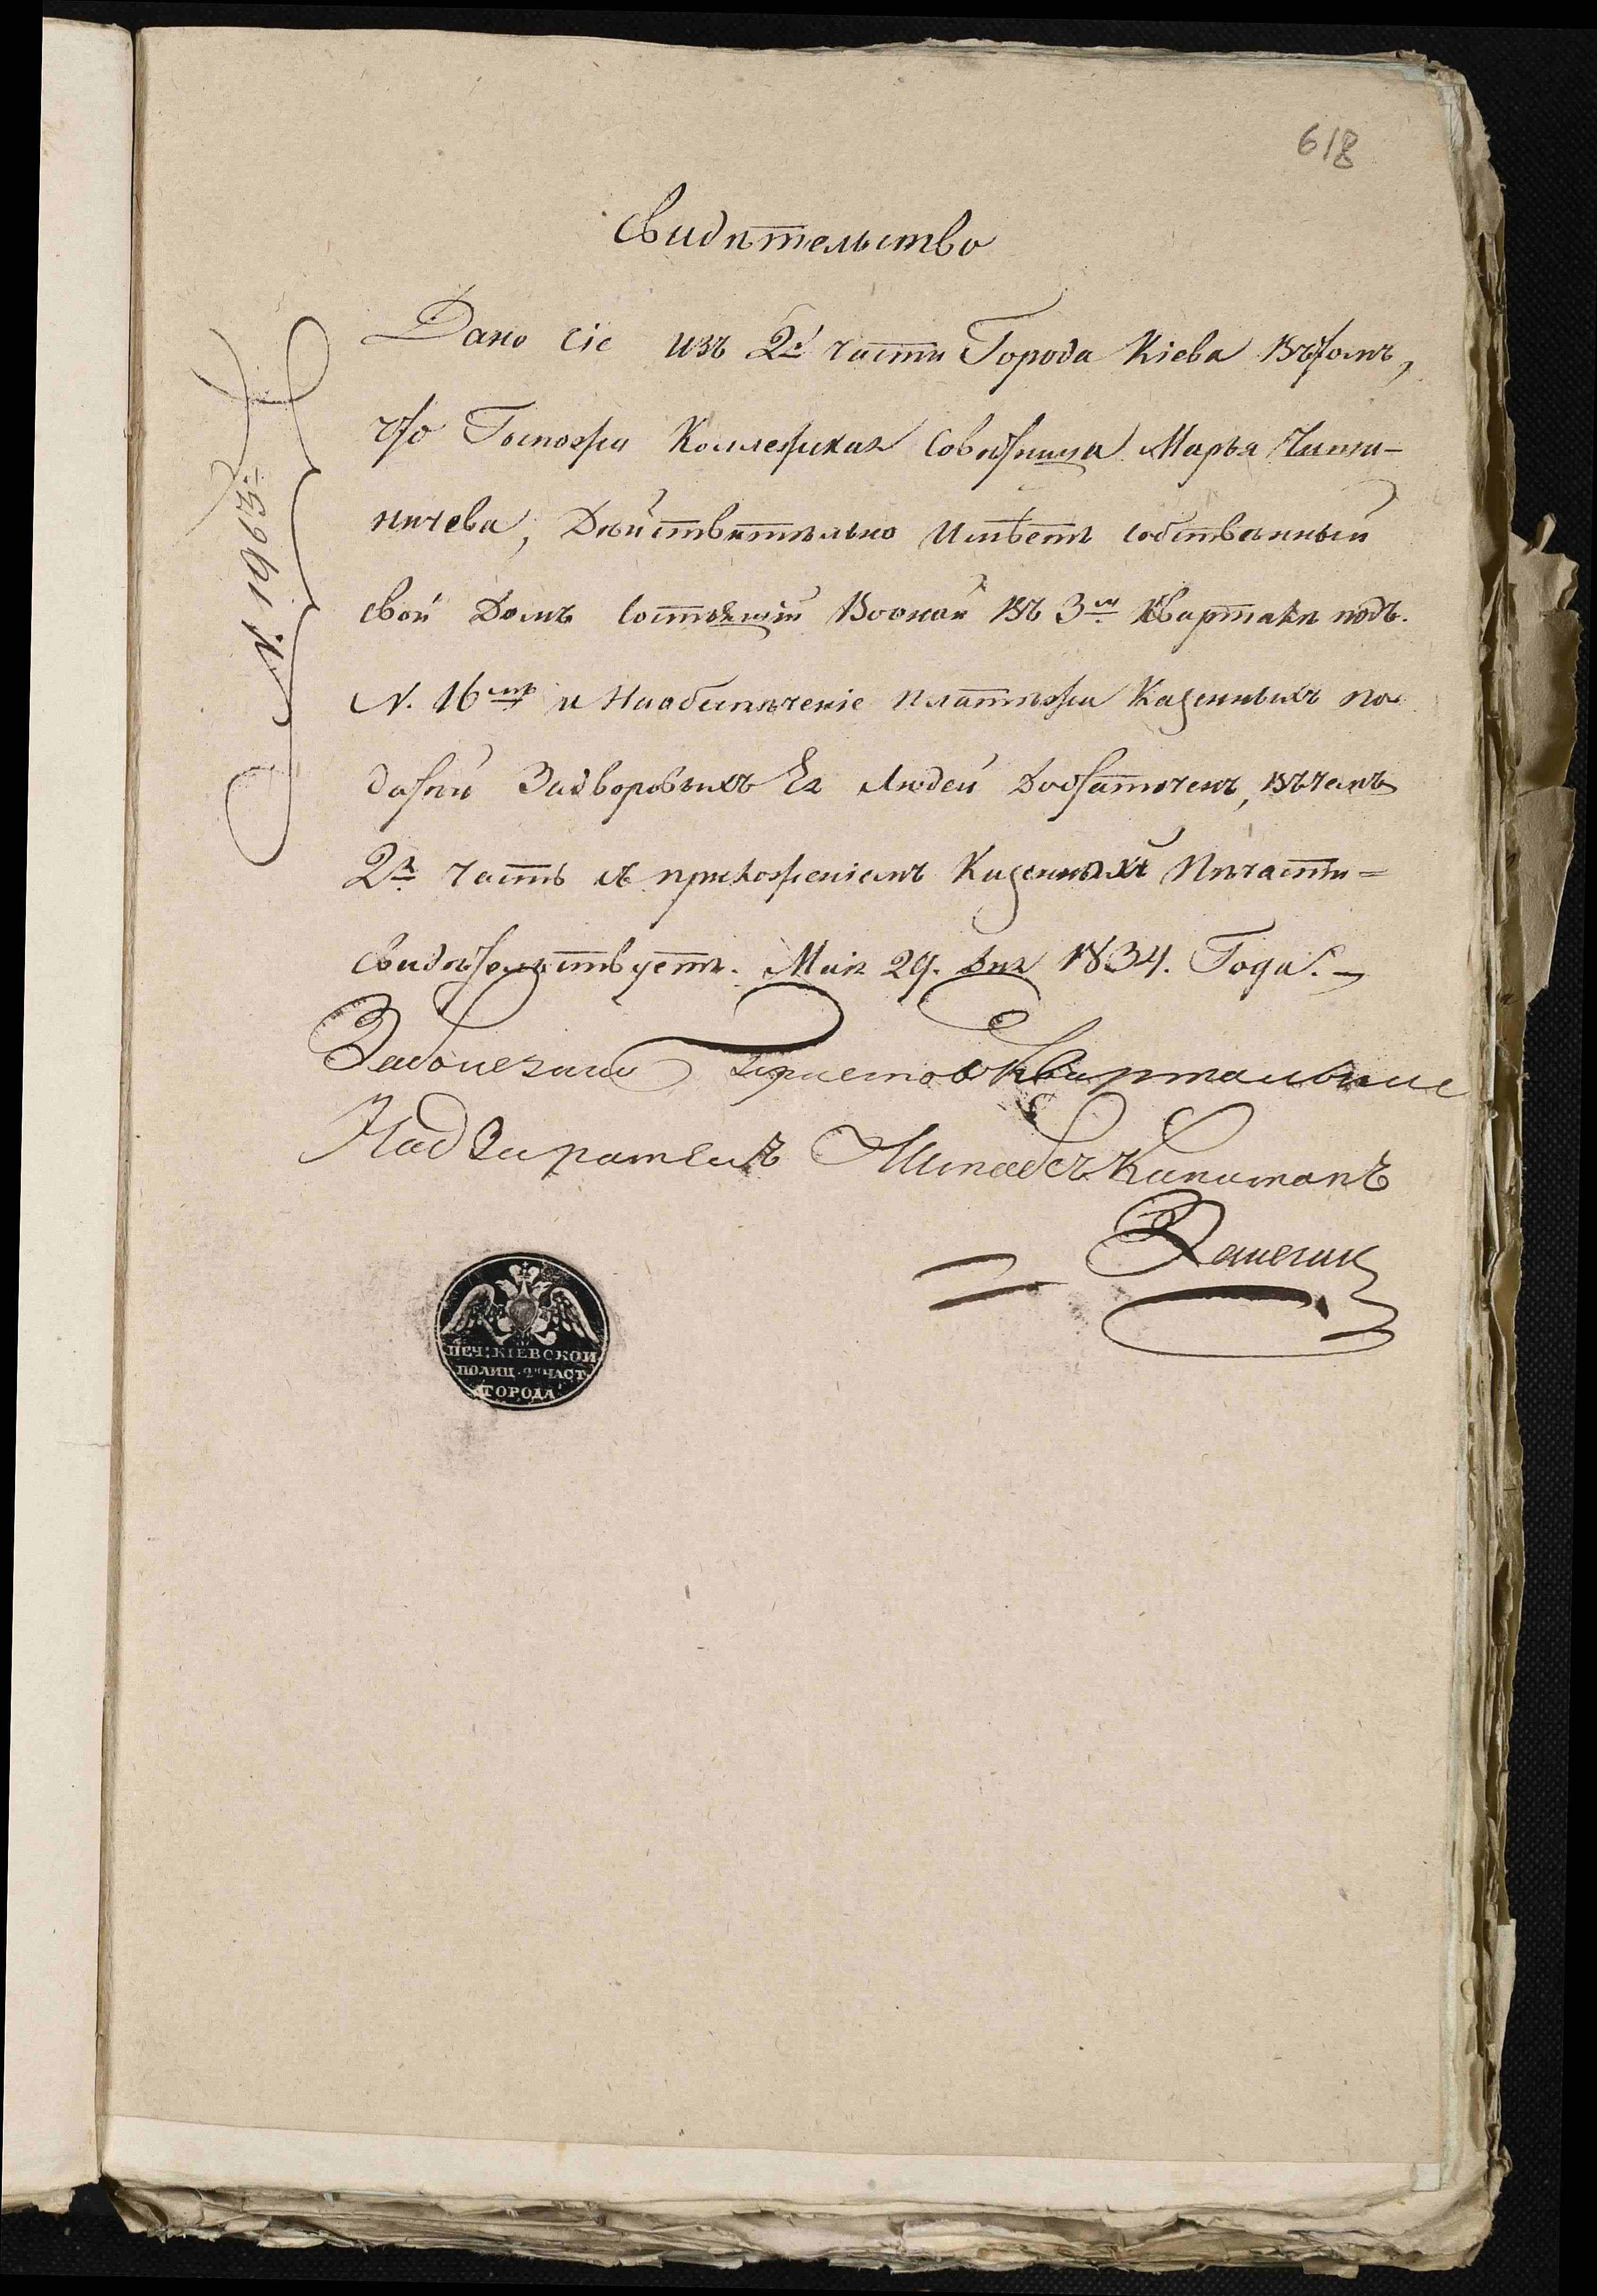 618
Свидѣтельство
N. 1963.
Дано сіе изъ 2й части Города Кіева въ томъ,
что Госпожа Коллежская Совѣтница Марья
ничева, Дѣйствительно Имѣетъ собственный
свой Домъ состоящій Воонай въ 3мъ Кварталѣ подъ.
N. 16мъ и Наобеспѣченіе платежа Казенныхъ по
датей Задворовыхъ Ея Людей Достаточенъ, въ чемъ
2я часть съ приложеніемъ Казенныхъ Печати =
свидѣтельствуетъ. Мая 29. дня 1834. Года. –
За Приставъ Квартальные
Надзиратель Штабсъ Капитанъ
ПЕЧ: КІЕВСКОЙ
ПОЛИЦ. 2й ЧАСТ.
ГОРОДА